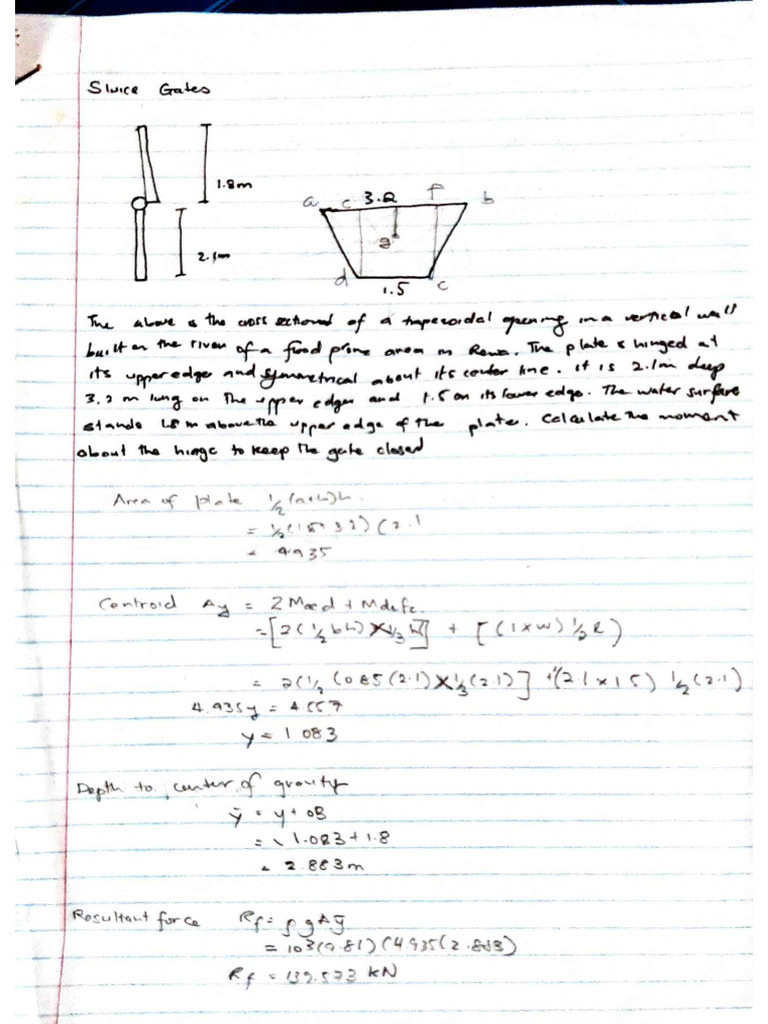 Sluice Gates
1.8m
2.1m
a c 3.2 f b
g
d 1.5 c
The above is the cross sectioned of a trapezoidal opening in a vertical wall
built on the river of a flood prone area in Rewa. The plate is hinged at
its upper edge and symmetrical about its center line. it is 2.1m deep
3.2 m long on the upper edges and 1.5 on its lower edge. The water surface
stands 1.8 m above the upper edge of the plate. Calculate the moment
about the hinge to keep the gate closed
Area of plate 1/2 (a+b)h.
= 1/2 (1.5+3.2)(2.1
= 4.935
Centroid Ay = 2 Macd + Mdefc.
= [2(1/2 bh) x 1/3 h] + [(l x w) 1/2 l)
= 2(1/2 (0.85(2.1) x 1/3 (2.1)] + (2.1 x 1.5) 1/2 (2.1)
4.935y = 4.557
y = 1.083
Depth to center of gravity
ȳ = y + OB
= 1.083 + 1.8
= 2.883m
Resultant force Rf = ρgAȳ
= 103(9.81)(4.935(2.883)
Rf = 139.573 kN